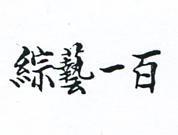 綜藝一百